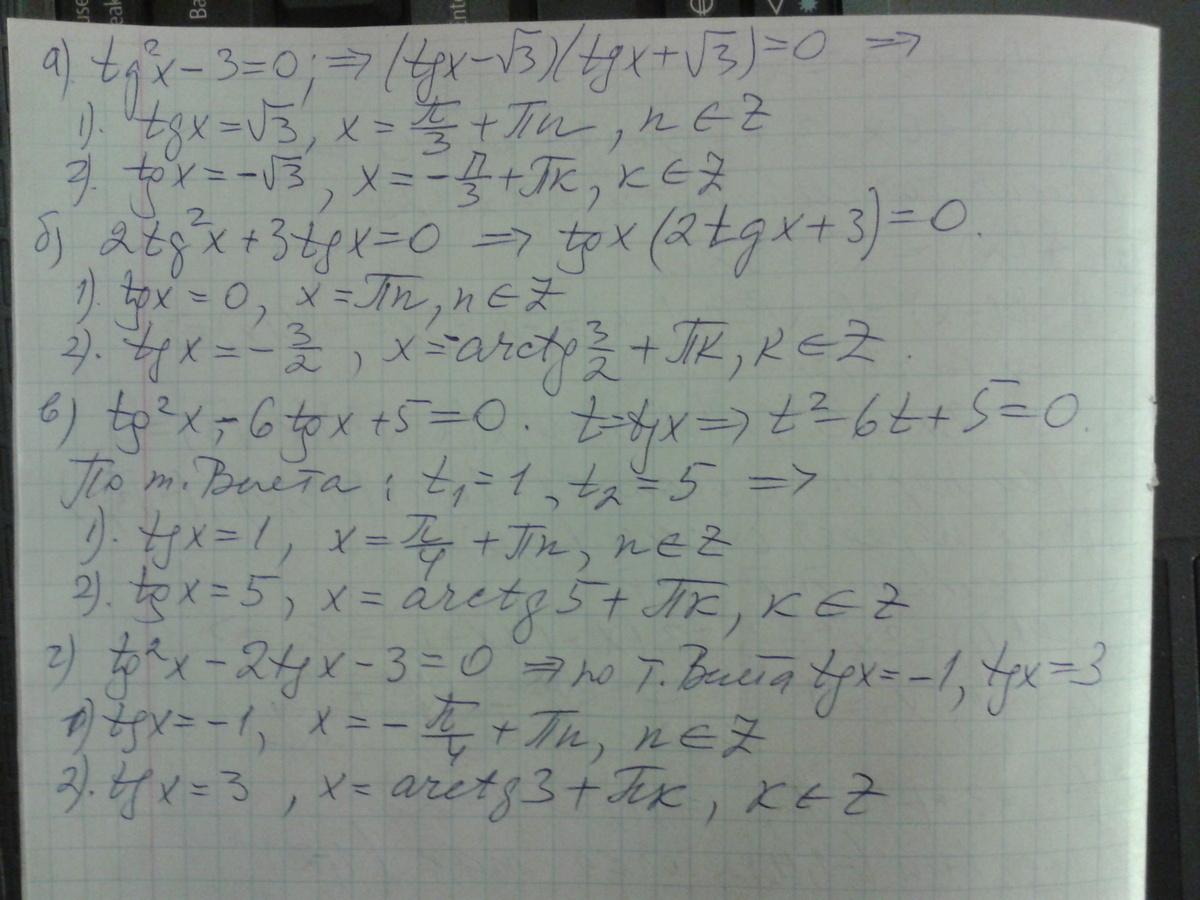 use
eak
Ba
Inte
а) tg²x − 3 = 0; ⇒ (tgx − √3)(tgx + √3) = 0 ⇒
1). tgx = √3, x = π/3 + Пn, n ∈ Z
2). tgx = −√3, x = −π/3 + Пк, к ∈ Z
б) 2tg²x + 3tgx = 0 ⇒ tgx (2tgx + 3) = 0.
1). tgx = 0, x = Пn, n ∈ Z
2). tgx = −3/2, x = −arctg 3/2 + Пк, к ∈ Z.
в) tg²x − 6tgx + 5 = 0. t = tgx ⇒ t² − 6t + 5 = 0.
По т. Виета: t₁ = 1, t₂ = 5 ⇒
1). tgx = 1, x = π/4 + Пn, n ∈ Z
2). tgx = 5, x = arctg5 + Пк, к ∈ Z
г) tg²x − 2tgx − 3 = 0 ⇒ по т. Виета tgx = −1, tgx = 3
1) tgx = −1, x = −π/4 + Пn, n ∈ Z
2). tgx = 3, x = arctg3 + Пк, к ∈ Z